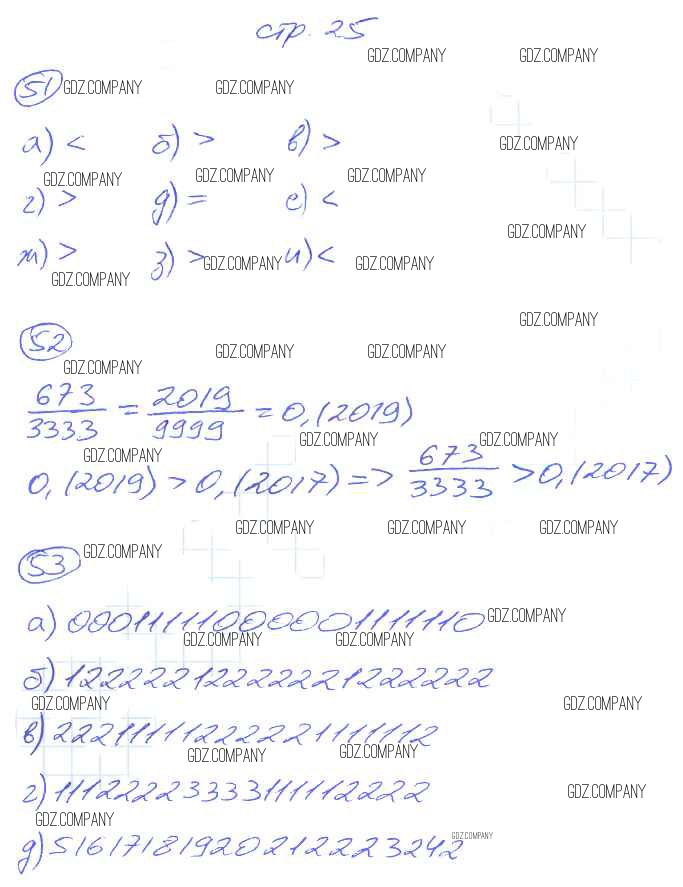 стр. 25
GDZ.COMPANY GDZ.COMPANY
51 GDZ.COMPANY GDZ.COMPANY
а) < б) > в) > GDZ.COMPANY
GDZ.COMPANY GDZ.COMPANY GDZ.COMPANY
г) > д) = е) <
GDZ.COMPANY
ж) > з) > GDZ.COMPANY и) < GDZ.COMPANY
GDZ.COMPANY
GDZ.COMPANY
52 GDZ.COMPANY GDZ.COMPANY
GDZ.COMPANY
673/3333 = 2019/9999 = 0,(2019)
GDZ.COMPANY GDZ.COMPANY
GDZ.COMPANY
0,(2019) > 0,(2017) => 673/3333 > 0,(2017)
GDZ.COMPANY GDZ.COMPANY GDZ.COMPANY
53 GDZ.COMPANY
а) GDZ.COMPANY
GDZ.COMPANY GDZ.COMPANY
б) 122222122222221222222
GDZ.COMPANY GDZ.COMPANY
в)
GDZ.COMPANY GDZ.COMPANY
г) GDZ.COMPANY
GDZ.COMPANY
GDZ.COMPANY
д) 51617181920212223242